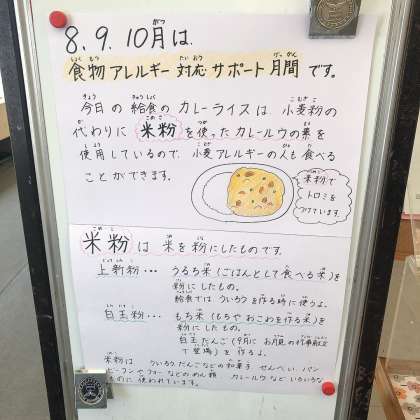 8、9、10月は、
食物アレルギー対応サポート月間です。
今日の給食のカレーライスは、小麦粉の
代わりに米粉を使ったカレールウの素を
使用しているので、小麦アレルギーの人も食べる
ことができます。
米粉で
トロミを
つけています。
米粉は米を粉にしたものです。
上新粉・・・うるち米(ごはんとして食べる米)を
粉にしたもの。
給食ではういろうを作る時に使うよ。
白玉粉・・・もち米(もちやおこわを作る米)を
粉にしたもの。
白玉だんご(9月にお月見の行事献立
で登場)を作るよ。
米粉は、ういろうだんごなどの和菓子、せんべい、パン、
ビーフンやフォーなどのめん類、カレールウなどいろいろな
ものに使われています。